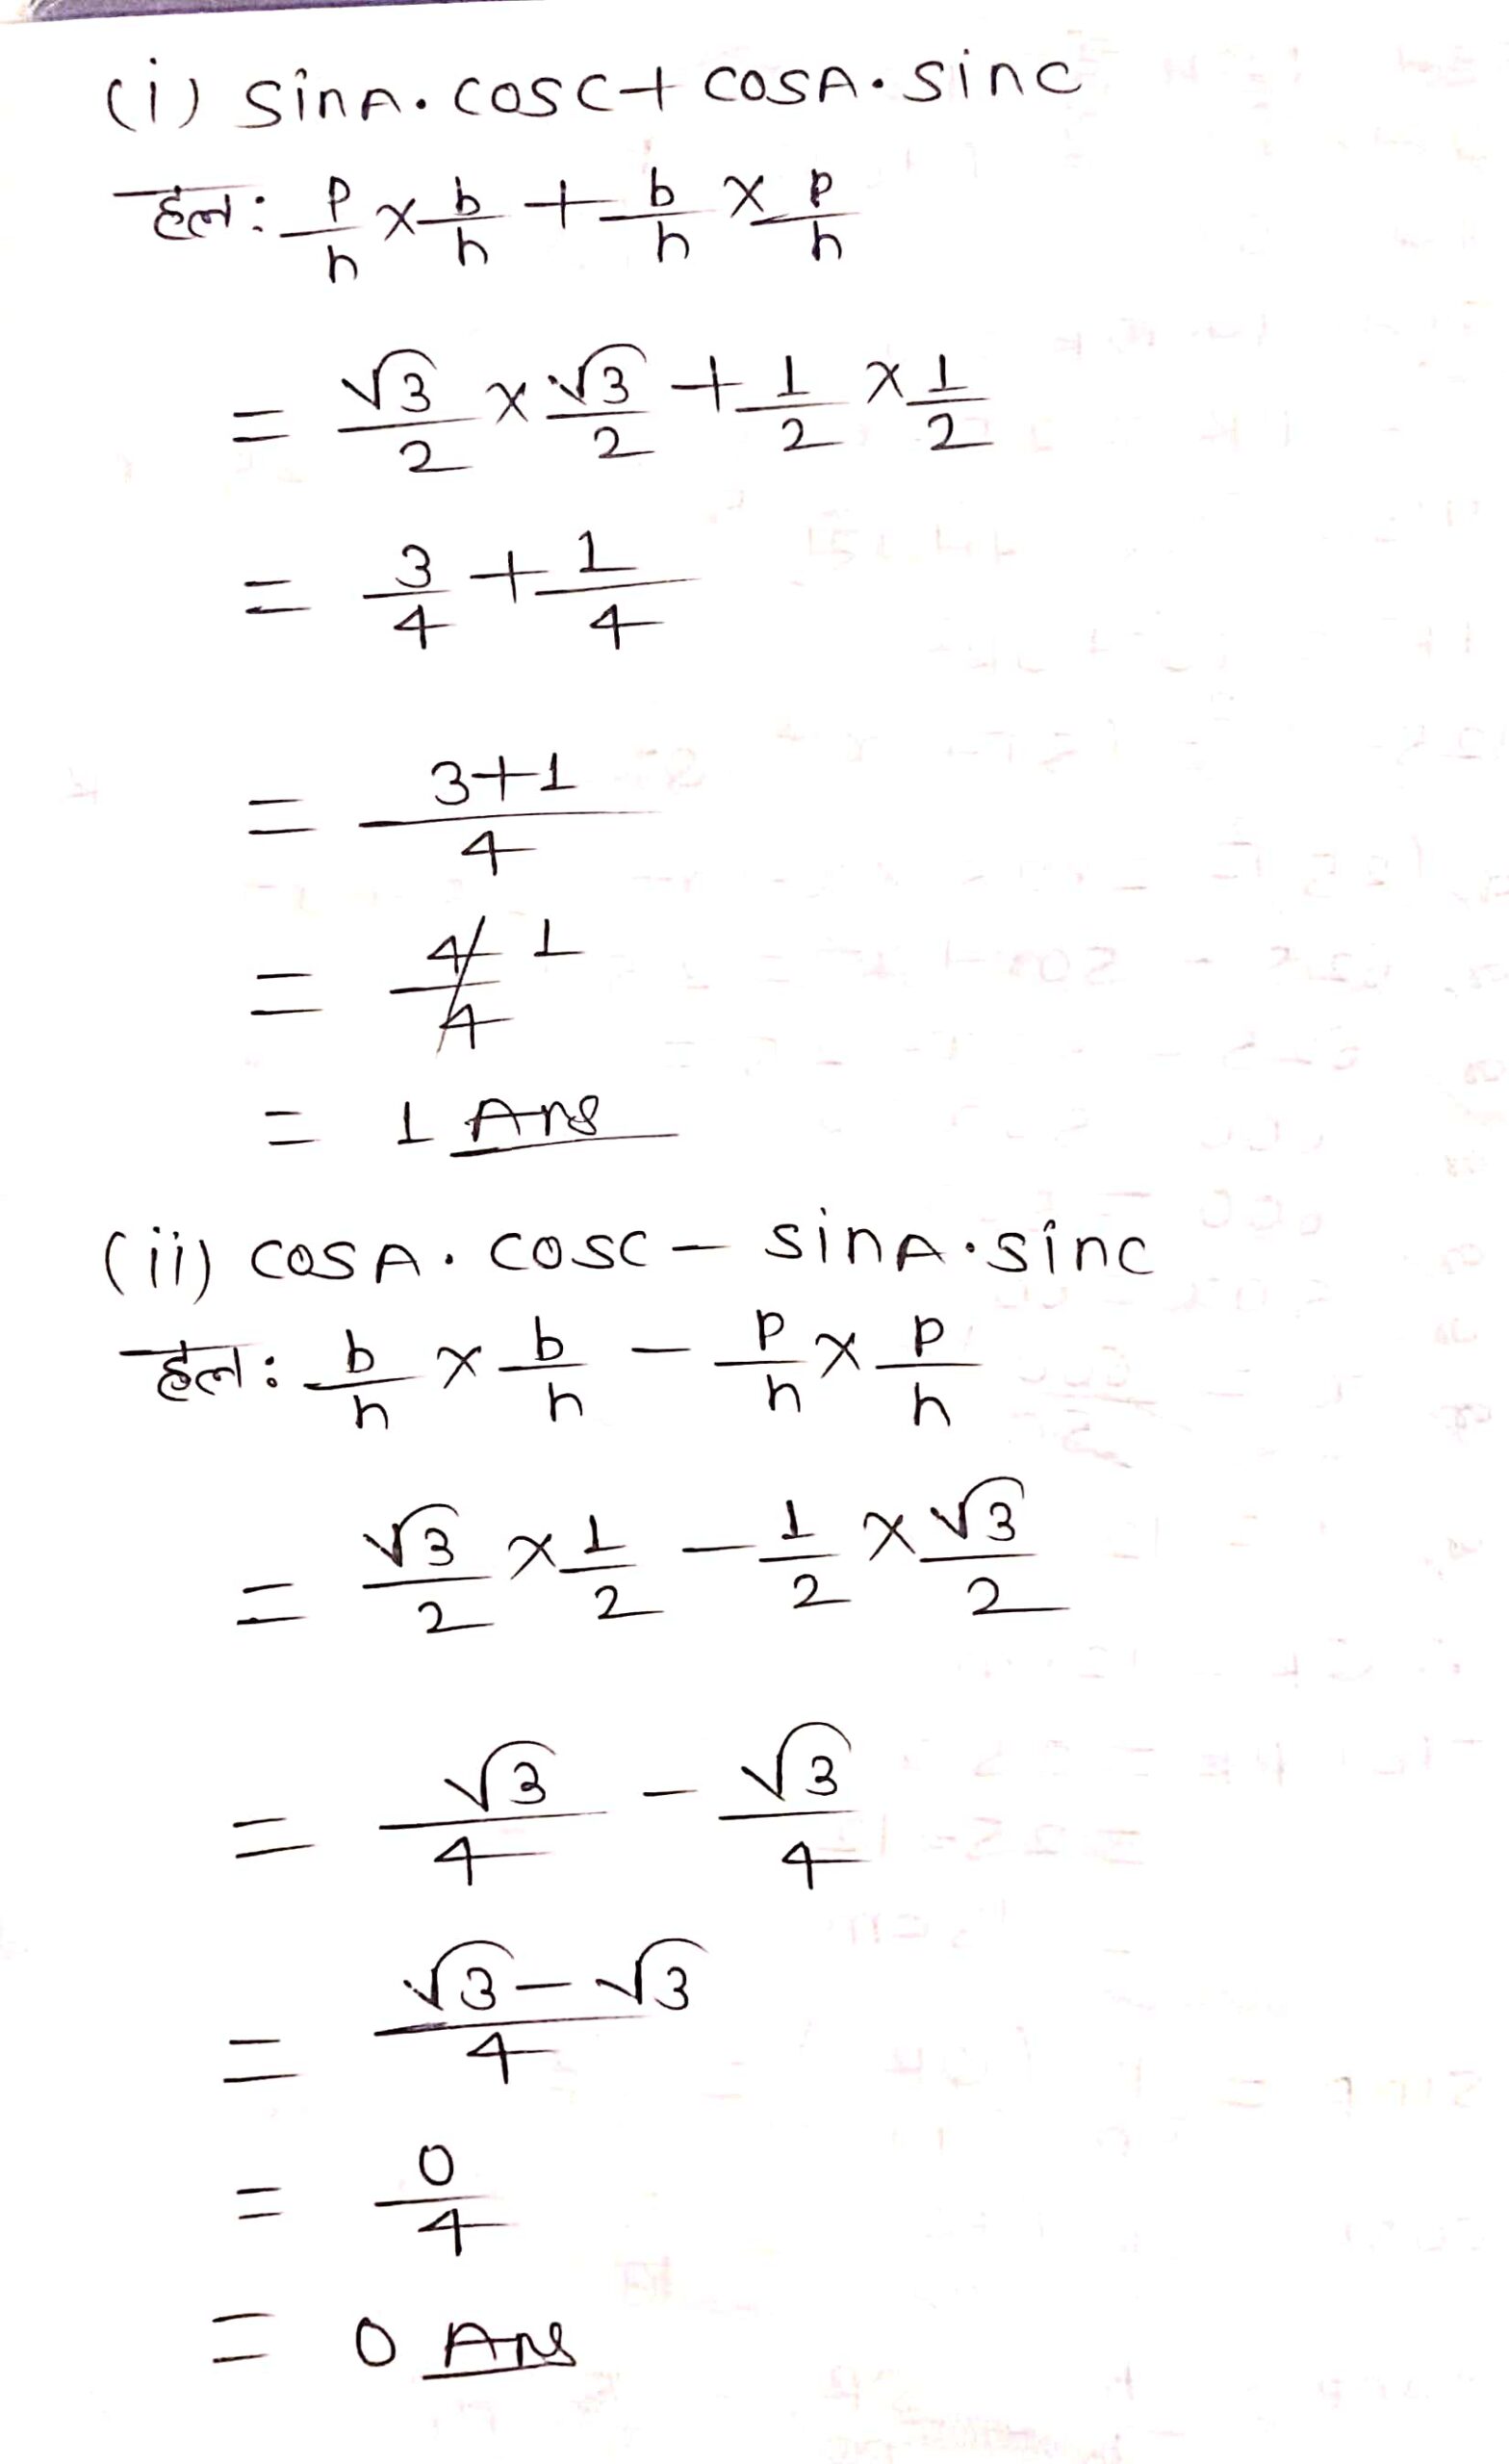 (i) sinA. cosC + cosA. sinC
हल: p/h × b/h + b/h × p/h
= √3/2 × √3/2 + 1/2 × 1/2
= 3/4 + 1/4
= 3+1/4
= 4/4 1
= 1 Ans
(ii) cosA. cosC − sinA. sinC
हल: b/h × b/h − p/h × p/h
= √3/2 × 1/2 − 1/2 × √3/2
= √3/4 − √3/4
= √3−√3/4
= 0/4
= 0 Ans